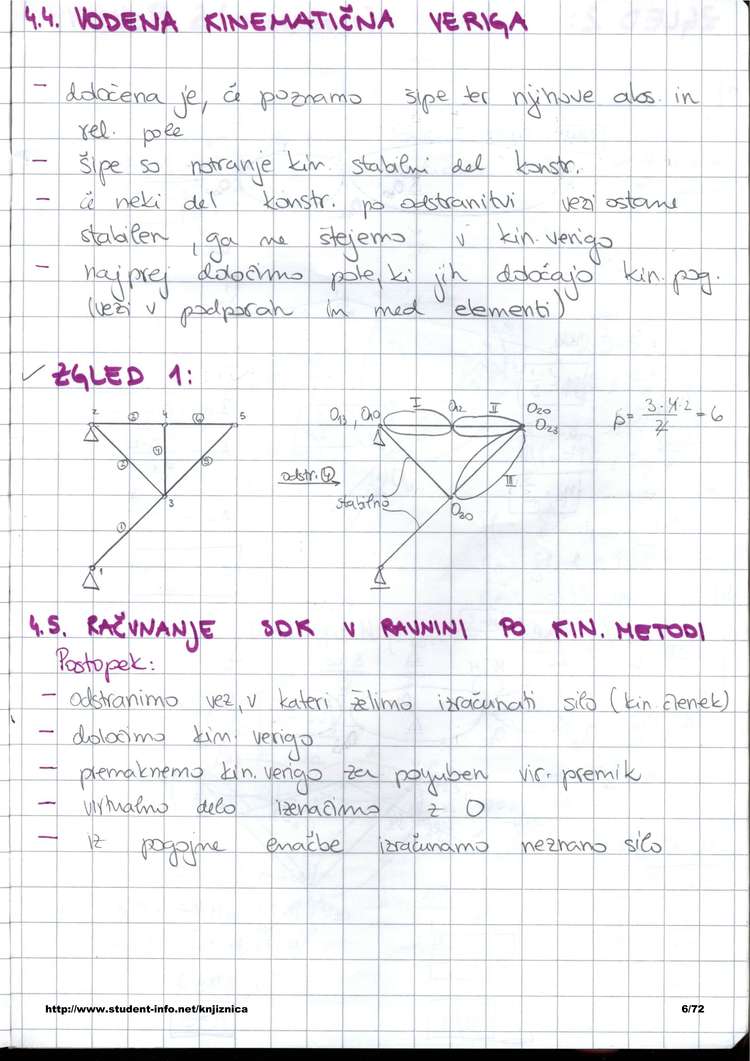 4.4. VODENA KINEMATIČNA VERIGA
- določena je, če poznamo šipe ter njihove abs. in
rel. pole
- šipe so notranje kin. stabilni del konstr.
- če neki del konstr. po odstranitvi vezi ostane
stabilen, ga ne štejemo v kin. verigo
- najprej določimo pole, ki jih določajo kin. pog.
(vezi v podporah in med elementi)
✓ ZGLED 1:
2 ③ 4 ⑥ 5
② ④ ⑤
3
①
1
odstr. ④
O13, O10 I O12 II O20
O23
III
stabilno
O20
p = 3·4·2 / 2 = 6
4.5. RAČUNANJE SDK V RAVNINI PO KIN. METODI
Postopek:
- odstranimo vez, v kateri želimo izračunati silo (kin. členek)
- določimo kin. verigo
- premaknemo kin. verigo za poljuben vir. premik
- virtualno delo izenačimo z 0
- iz pogojne enačbe izračunamo neznano silo
http://www.student-info.net/knjiznica
6/72